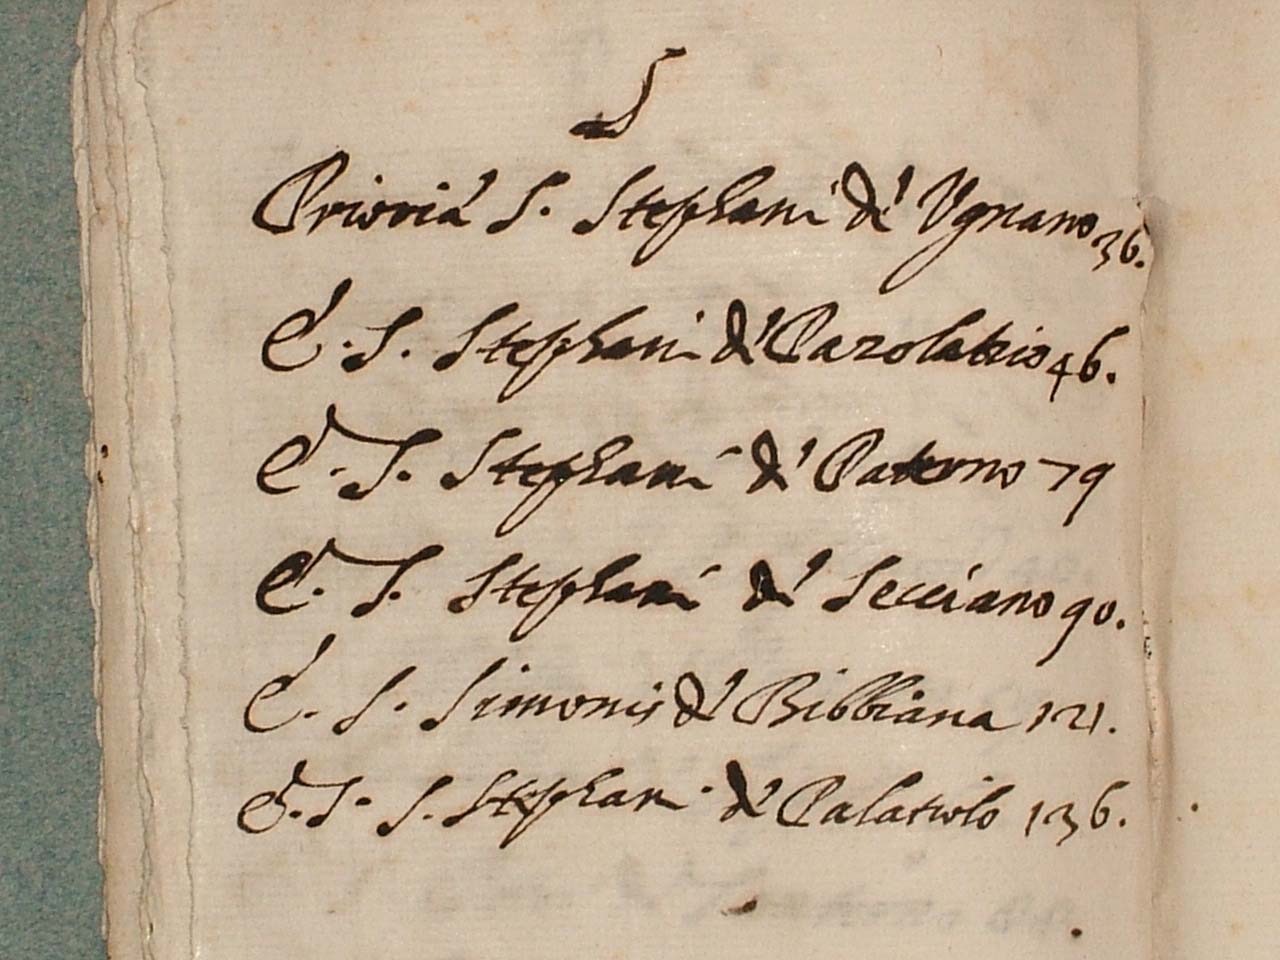 S
Prioria S. Stephani de Ugnano 36.
E. S. Stephani de Pazolatico 46.
E. S. Stephani de Paterno 79
E. S. Stephani de Secciano 90.
E. S. Simonis de Bibbiana 121.
E. S. S. Stephani de Palatiolo 136.